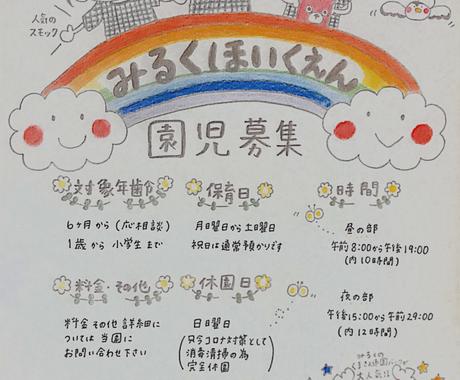 人気の
スモック
みるくほいくえん
園児募集
対象年齢
6ヶ月から(応相談)
1歳から 小学生まで
保育日
月曜日から土曜日
祝日は通常預かりです
時間
昼の部
午前8:00から午後19:00
(内10時間)
料金・その他
料金その他 詳細に
ついては 当園に
お問い合わせ下さい
休園日
日曜日
(只今コロナ対策として
消毒清掃の為
完全休園)
夜の部
午後15:00から午前29:00
(内12時間)
みるくの
大人気!!